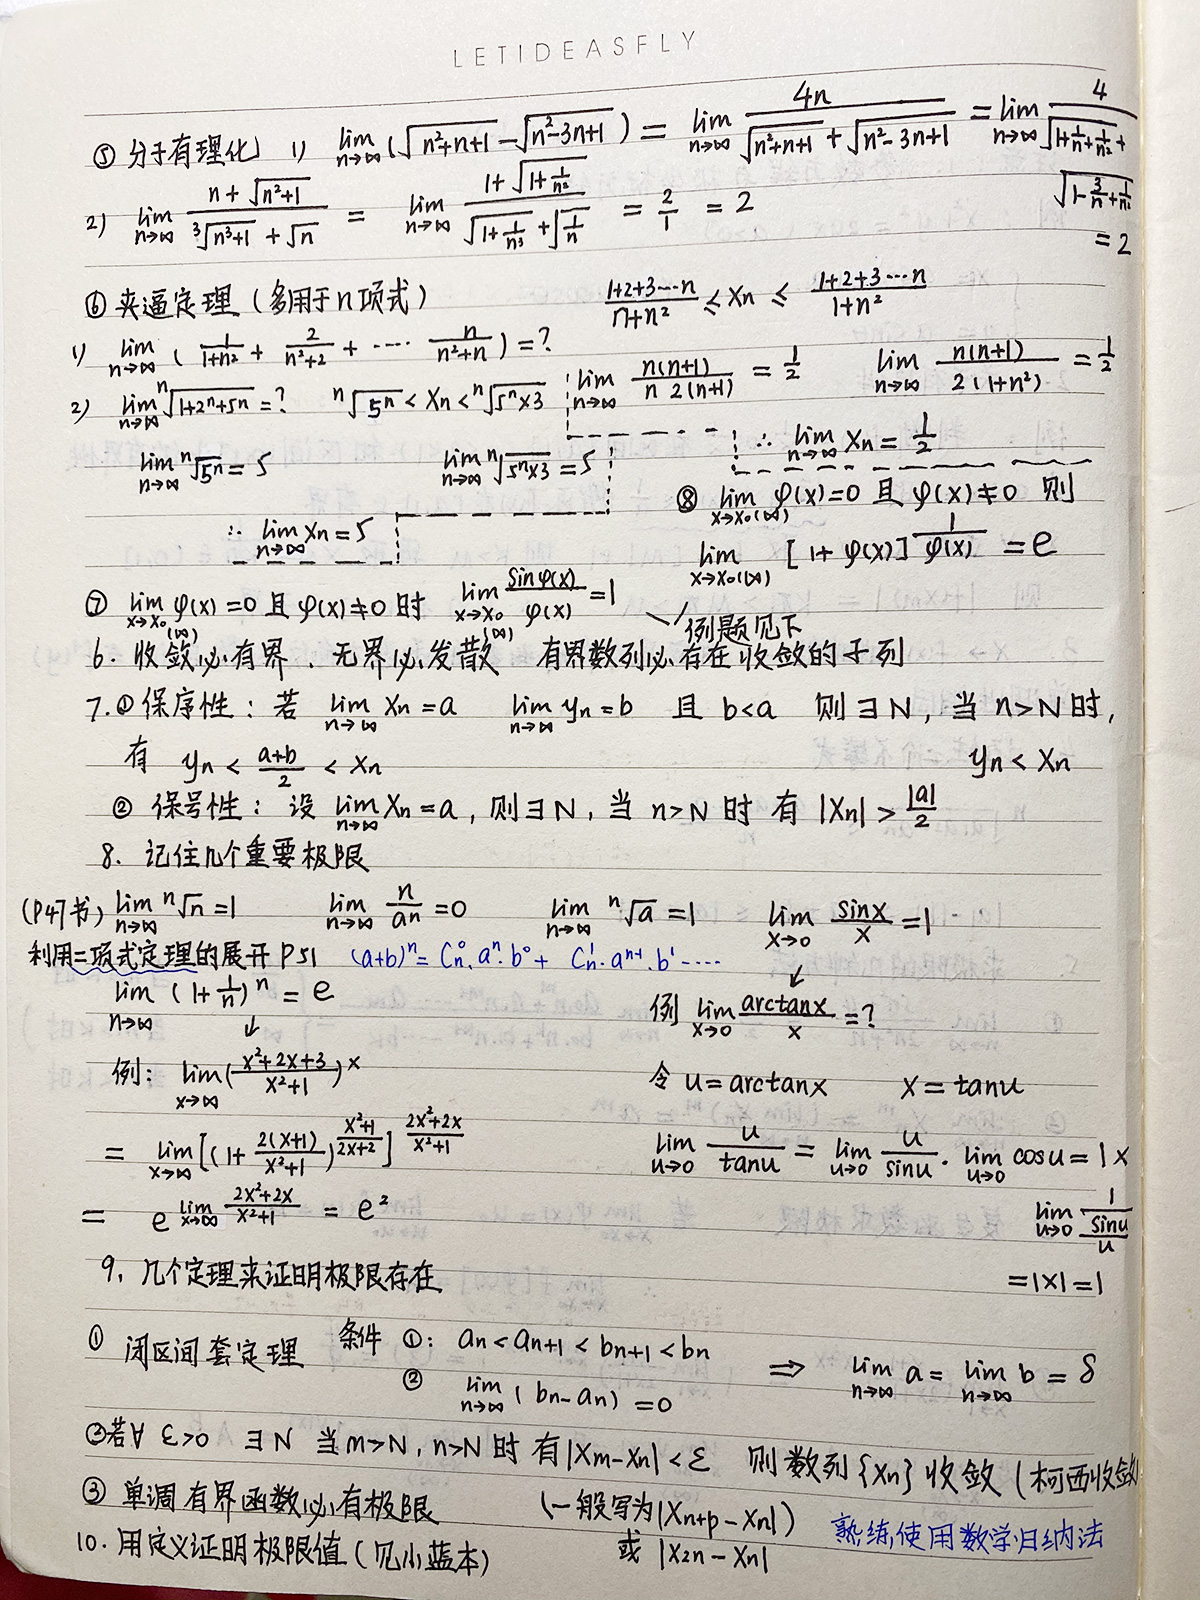 LETIDEASFLY
⑤ 分子有理化 1) lim n→∞ (√(n²+n+1) - √(n²-3n+1)) = lim n→∞ 4n/(√(n²+n+1) + √(n²-3n+1)) = lim n→∞ 4/(√(1+1/n+1/n²) + √(1-3/n+1/n²)) = 2
2) lim n→∞ (n+√(n²+1))/(³√(n³+1) + √n) = lim n→∞ (1+√(1+1/n²))/(√(1+1/n³) + √(1/n)) = 2/1 = 2
⑥ 夹逼定理 (多用于n项式) (1+2+3…n)/(n+n²) ≤ Xn ≤ (1+2+3…n)/(1+n²)
1) lim n→∞ (1/(1+n²) + 2/(n²+2) + … n/(n²+n)) = ?
lim n→∞ n(n+1)/(n 2(n+1)) = 1/2 lim n→∞ n(n+1)/(2(1+n²)) = 1/2
∴ lim n→∞ Xn = 1/2
2) lim n→∞ ⁿ√(1+2ⁿ+5ⁿ) = ? ⁿ√(5ⁿ) < Xn < ⁿ√(5ⁿ×3)
lim n→∞ ⁿ√(5ⁿ) = 5 lim n→∞ ⁿ√(5ⁿ×3) = 5
∴ lim n→∞ Xn = 5
⑧ lim x→x₀(∞) φ(x)=0 且 φ(x)≠0 则
lim x→x₀(∞) [1+φ(x)]^(1/φ(x)) = e
⑦ lim x→x₀(∞) φ(x)=0 且 φ(x)≠0 时 lim x→x₀(∞) sinφ(x)/φ(x) = 1
例题见下
6. 收敛必有界、无界必发散 有界数列必存在收敛的子列
7. ①保序性: 若 lim n→∞ Xn=a lim n→∞ yn=b 且 b<a 则∃N, 当 n>N时,
有 yn < (a+b)/2 < Xn yn < Xn
② 保号性: 设 lim n→∞ Xn=a, 则∃N, 当 n>N 时 有 |Xn| > |a|/2
8. 记住几个重要极限
(P47书) lim n→∞ ⁿ√n =1 lim n→∞ n/aⁿ =0 lim n→∞ ⁿ√a =1 lim x→0 sinx/x =1
利用二项式定理的展开 P51 (a+b)ⁿ = Cn⁰·aⁿ·b⁰ + Cn¹·aⁿ⁺¹·b¹ ……
lim n→∞ (1+1/n)ⁿ = e
例: lim x→∞ ((x²+2x+3)/(x²+1))^x
= lim x→∞ [(1+2(x+1)/(x²+1))^((x²+1)/(2x+2))]^((2x²+2x)/(x²+1))
= e^(lim x→∞ (2x²+2x)/(x²+1)) = e²
例 lim x→0 arctanx/x = ?
令 u=arctanx x=tanu
lim u→0 u/tanu = lim u→0 u/sinu · lim u→0 cosu = 1×
lim u→0 1/(sinu/u)
=1×1=1
9. 几个定理来证明极限存在
① 闭区间套定理 条件 ①: an<an+1<bn+1<bn
② lim n→∞ (bn-an)=0 ⇒ lim n→∞ a = lim n→∞ b = δ
②若∀ ε>0 ∃N 当m>N, n>N时 有|Xm-Xn|<ε 则数列{Xn}收敛 (柯西收敛
③ 单调有界函数必有极限 (一般写为|Xn+p-Xn|)
或 |X2n-Xn|
熟练使用数学归纳法
10. 用定义证明极限值 (见小蓝本)